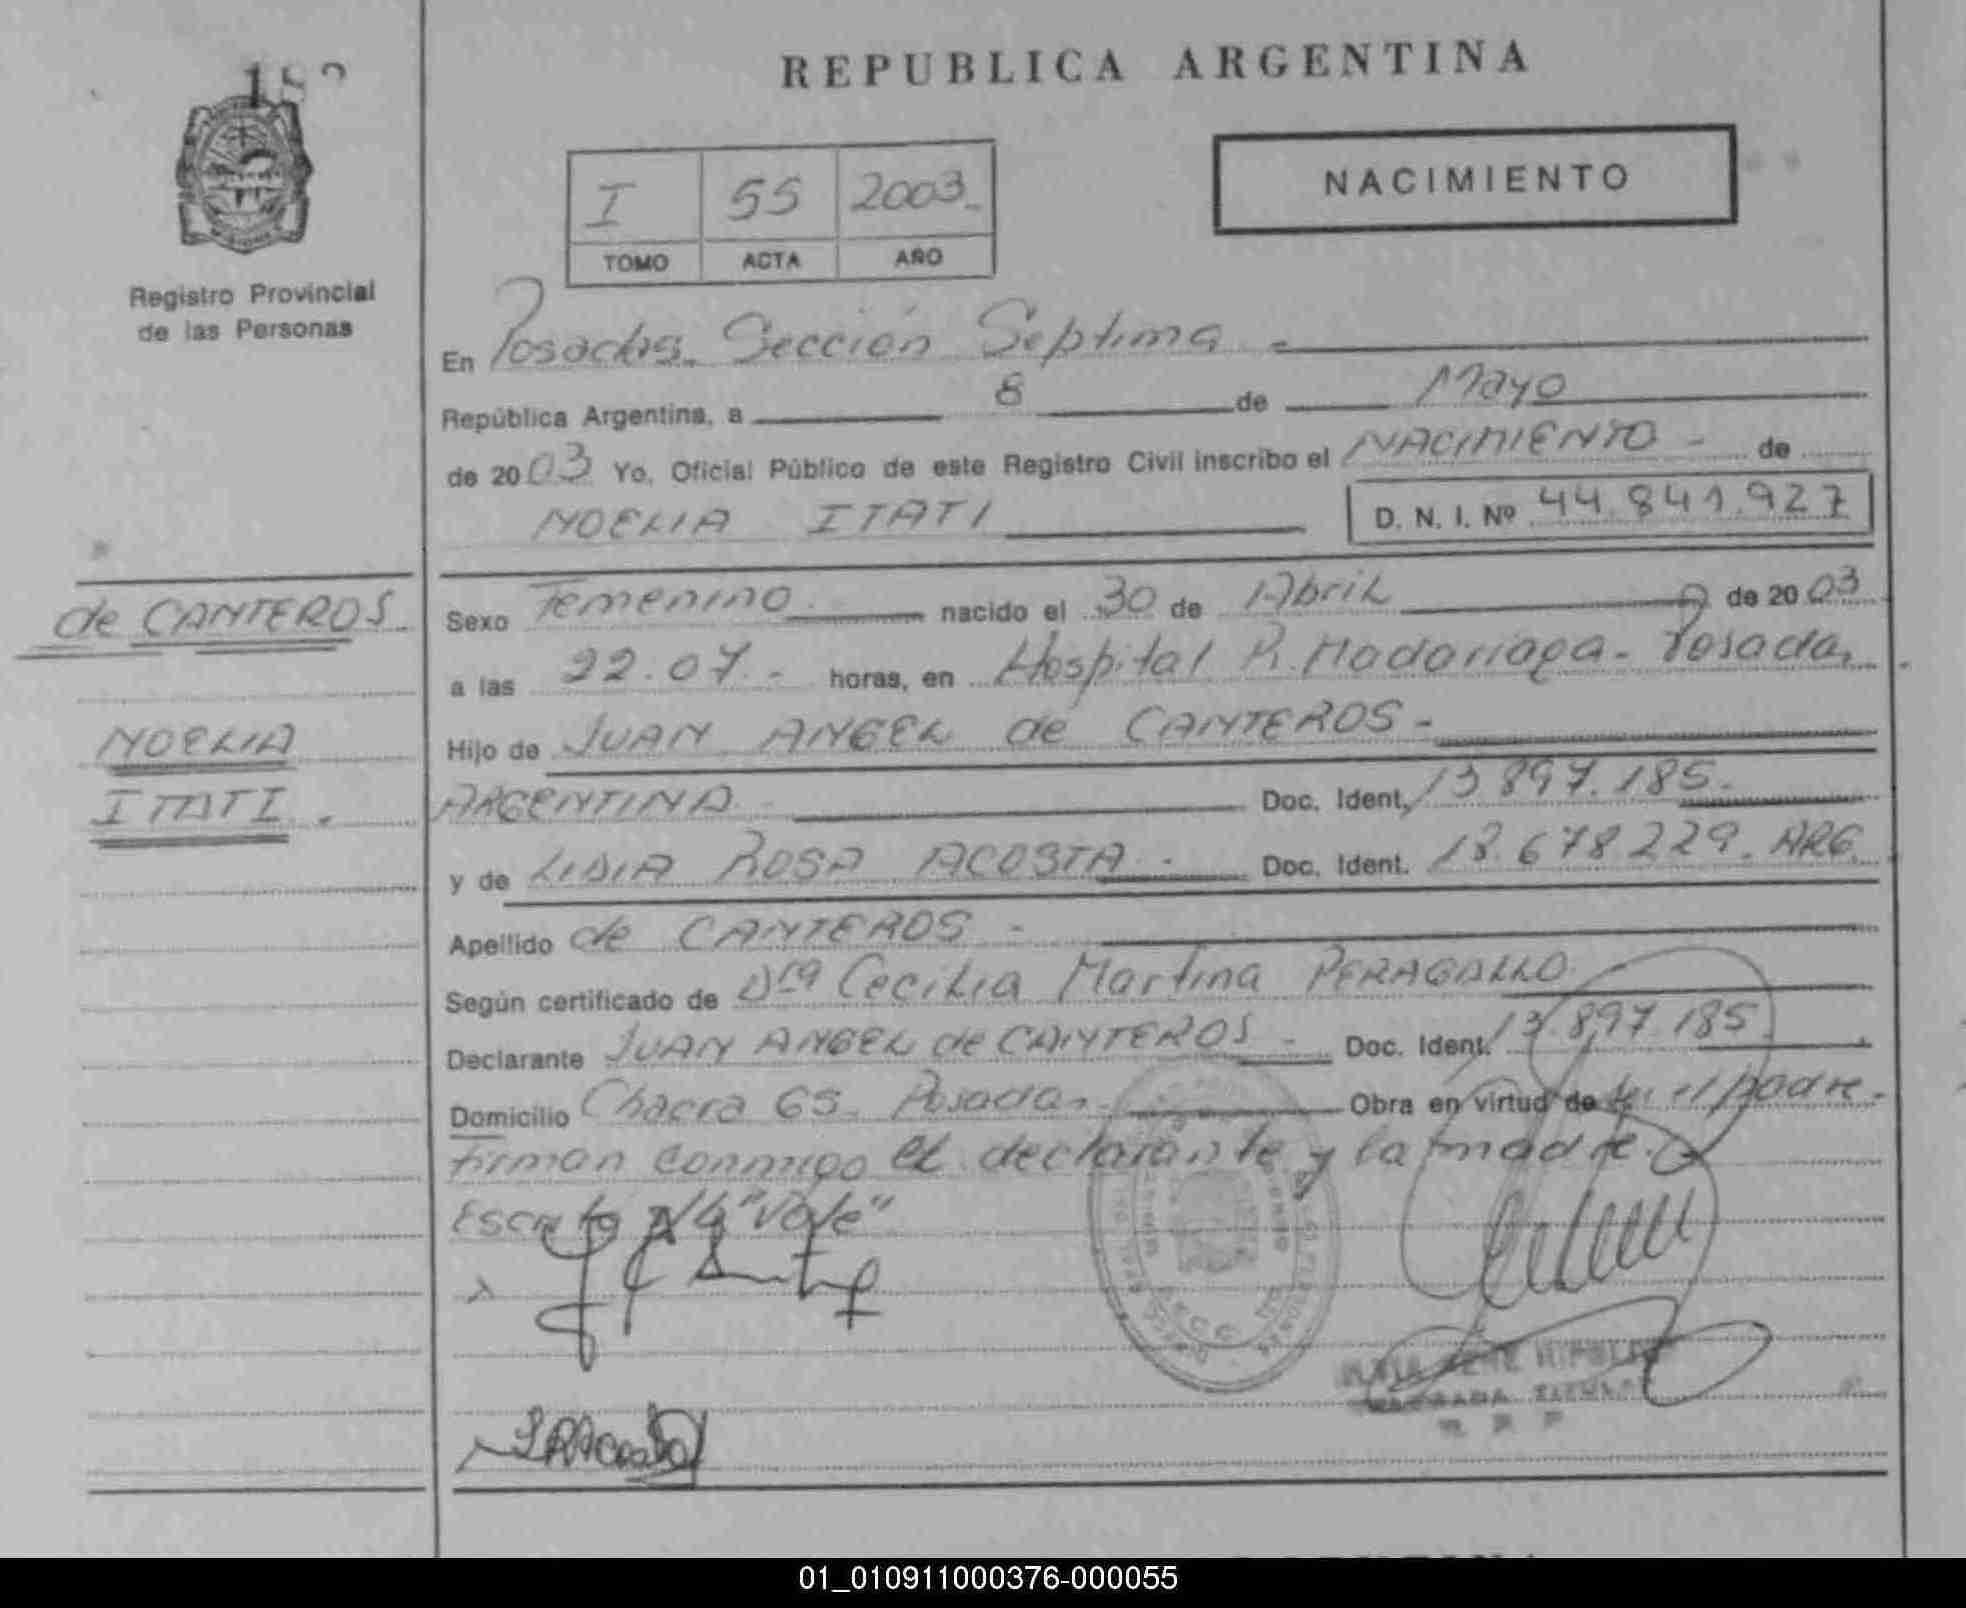 REPUBLICA ARGENTINA
Registro Provincial
de las Personas
I 55 2003
TOMO ACTA AÑO
NACIMIENTO
En Posadas. Sección Septima
República Argentina, a 8 de Mayo
de 2003 Yo, Oficial Público de este Registro Civil inscribo el NACIMIENTO de
NOELIA ITATI
D. N. I. Nº 44.841.927
de CANTEROS
NOELIA
ITATI.
Sexo Femenino nacido el 30 de Abril de 2003
a las 22.07.- horas, en Hospital R. Madariaga - Posadas
Hijo de JUAN ANGEL de CANTEROS -
ARGENTINA Doc. Ident. 13.897.185.
y de LIDIA ROSA ACOSTA - Doc. Ident. 18.678.229. ARG.
Apellido de CANTEROS -
Según certificado de Dra Cecilia Martina PERAGALLO
Declarante JUAN ANGEL de CANTEROS - Doc. Ident. 13.897.185
Domicilio Chacra 65. Posadas Obra en virtud de ser el padre.
Firman conmigo el declarante y la madre.
Escrito "Vale"
LRAcosta
01_010911000376-000055